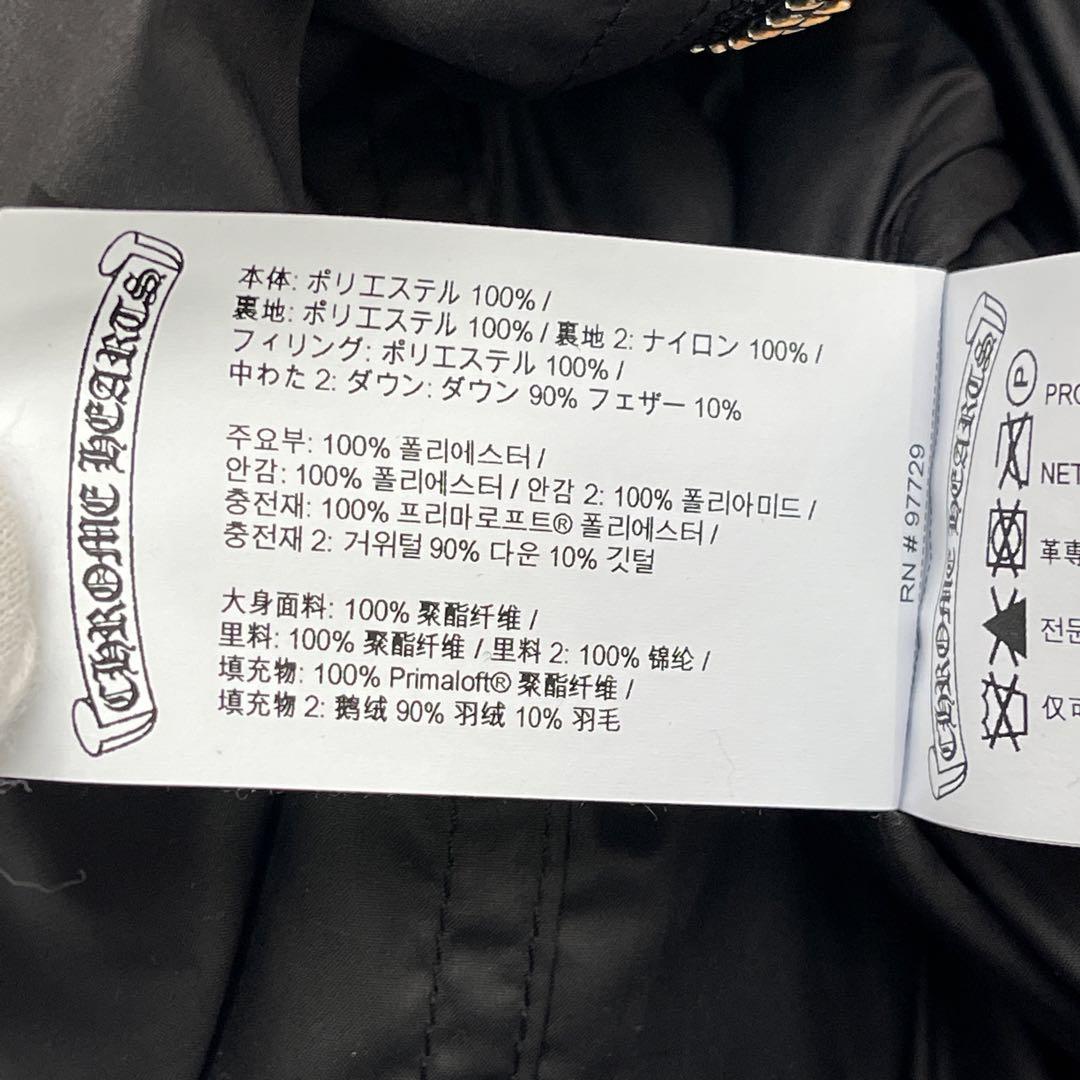 CHROME HEARTS
本体: ポリエステル 100% /
裏地: ポリエステル 100% / 裏地 2: ナイロン 100% /
フィリング: ポリエステル 100% /
中わた 2: ダウン: ダウン 90% フェザー 10%
주요부: 100% 폴리에스터 /
안감: 100% 폴리에스터 / 안감 2: 100% 폴리아미드 /
충전재: 100% 프리마로프트® 폴리에스터 /
충전재 2: 거위털 90% 다운 10% 깃털
大身面料: 100% 聚酯纤维 /
里料: 100% 聚酯纤维 / 里料 2: 100% 锦纶 /
填充物: 100% Primaloft® 聚酯纤维 /
填充物 2: 鹅绒 90% 羽绒 10% 羽毛
RN # 97729
CHROME HEARTS
P
PRO
NET
革専
전문
仅可